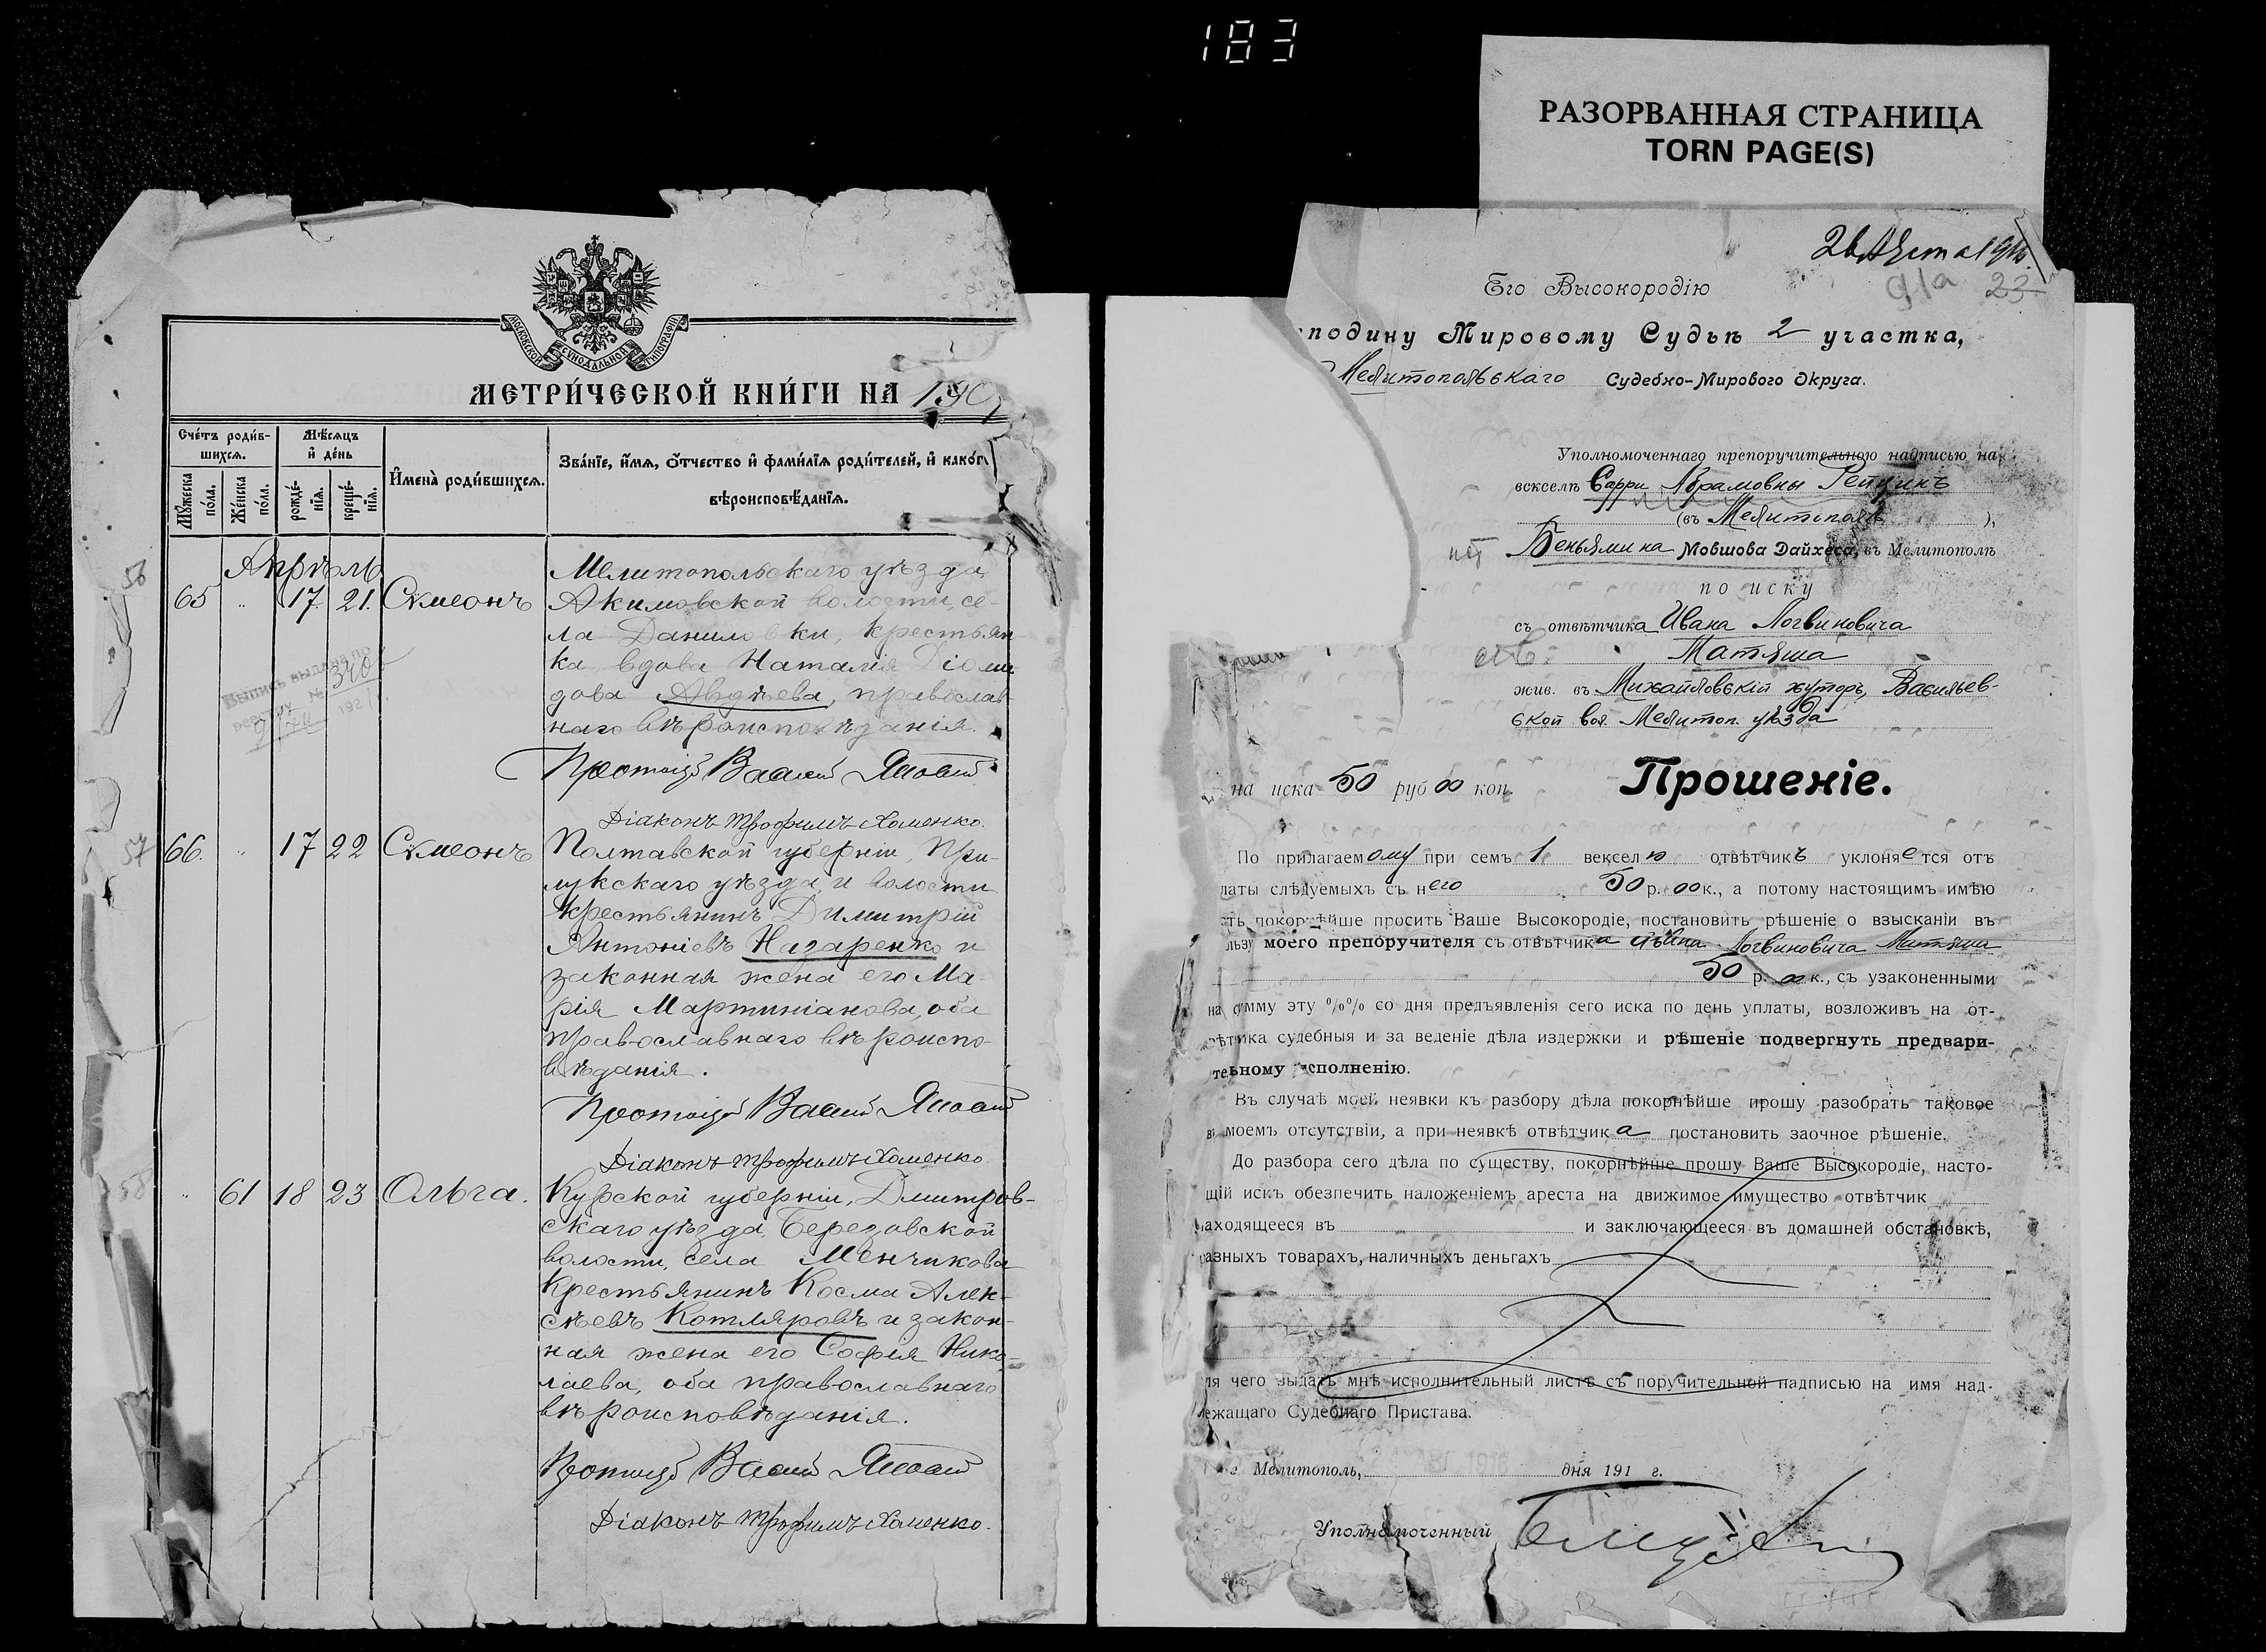 183
РАЗОРВАННАЯ СТРАНИЦА
TORN PAGE(S)
МОСКОВСКОЙ СѴНОДАЛЬНОЙ ТИПОГРАФІИ
МЕТРИ́ЧЕСКОЙ КНИ́ГИ НА 190
Сче́тъ роди́в-
шихсѧ.
Мѣ́сѧцъ
и҆ де́нь
И҆мена̀ роди́вшихсѧ.
Зва́нїе, и҆́мѧ, ѻ҆́тчество и҆ фами́лїѧ роди́телей, и҆ како́г
вѣроисповѣ́данїѧ.
Мꙋ́жеска по́ла.
Же́нска по́ла.
рожде́-нїѧ.
креще́-нїѧ.
Апрѣль
56
65 " 17. 21. Сѵмеонъ
Мелитопольскаго уѣзда
Акимовской волости, се-
ла Даниловки, крестьян-
ка вдова Наталія Діоми
дова Авдѣева, православ
наго вѣроисповѣданія.
Выпись выдана по
реестру № 340
192
Протоіер Василий
Діаконъ Трофимъ Хоменко.
57
66. " 17 22 Сѵмеонъ
Полтавской губерніи, При-
лукскаго уѣзда, и волости
крестьянинъ Димитрій
Антоніевъ Назаренко и
законная жена его Ма-
рія Мартиніанова, оба
православнаго вѣроиспо-
вѣданія.
Протоіер Василий
Діаконъ Трофимъ Хоменко
58
" 61 18 23 Ольга.
Курской губерніи, Дмитров-
скаго уѣзда, Березовской
волости, села Менчикова
крестьянинъ Косма Алек-
сѣевъ Котляровъ и закон-
ная жена его Софія Нико-
лаева, оба православнаго
вѣроисповѣданія.
Протоіер Василий
Діаконъ Трофимъ Хоменко.
91а 23
Его Высокородію
подину Мировому Судьѣ 2 участка,
Мелитопольскаго Судебно-Мирового Округа.
Уполномоченнаго препоручительною надписью на
векселѣ Сарри Абрамовны Репкинъ
(въ Мелитополѣ ),
Беньямина Мовшова Дайхеса, въ Мелитополѣ
по иску
съ отвѣтчика Ивана Логвиновича
Матяша
жив. въ Михайловскій хуторъ, Васильев-
ской вол. Мелитоп. уѣзда
на иска 50 руб 00 коп.
Прошеніе.
По прилагаемому при семъ 1 векселю отвѣтчикъ уклоняется отъ
латы слѣдуемыхъ съ него 50 р. 00 к., а потому настоящимъ имѣю
сть покорнѣйше просить Ваше Высокородіе, постановить рѣшеніе о взысканіи въ
льзу моего препоручителя съ отвѣтчика Ивана Логвиновича Матяша
50 р. 00 к., съ узаконенными
на сумму эту %% со дня предъявленія сего иска по день уплаты, возложивъ на от-
вѣтчика судебныя и за веденіе дѣла издержки и рѣшеніе подвергнуть предвари-
тельному исполненію.
Въ случаѣ моей неявки къ разбору дѣла покорнѣйше прошу разобрать таковое
въ моемъ отсутствіи, а при неявкѣ отвѣтчика постановить заочное рѣшеніе.
До разбора сего дѣла по существу, покорнѣйше прошу Ваше Высокородіе, насто-
щій искъ обезпечить наложеніемъ ареста на движимое имущество отвѣтчик
находящееся въ и заключающееся въ домашней обстановкѣ,
разныхъ товарахъ, наличныхъ деньгахъ
ля чего выдать мнѣ исполнительный листъ съ поручительной надписью на имя над-
лежащаго Судебнаго Пристава.
г. Мелитополь, 1916 дня 191 г.
Уполномоченный